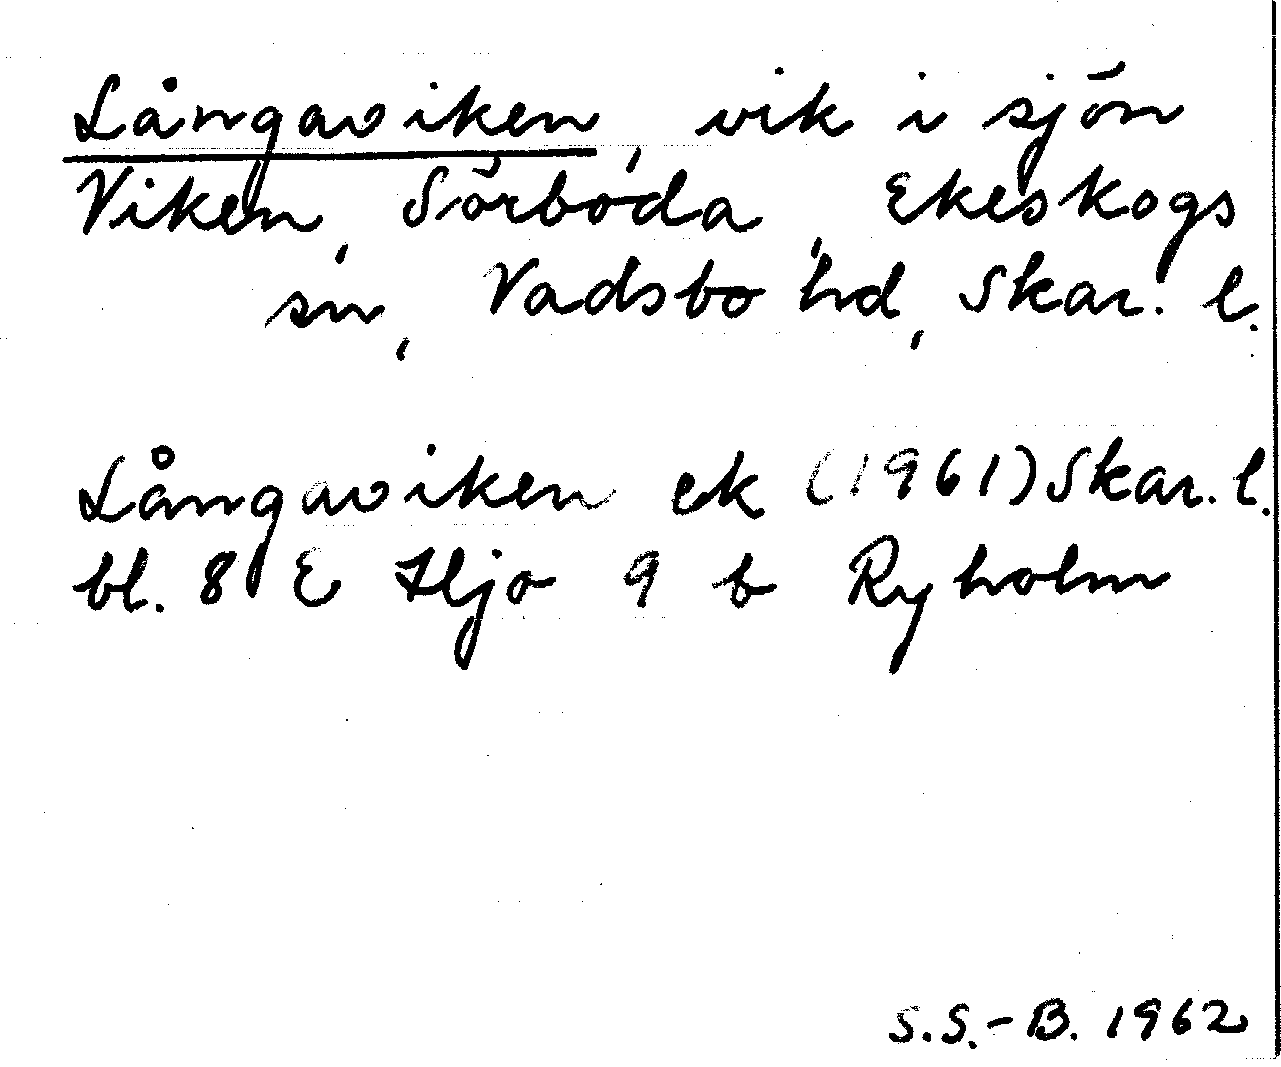 Långaviken, vik i sjön
Viken, Sörboda, Ekeskogs
sn, Vadsbo hd, Skar. l.
Långaviken ek (1961) Skar. l.
bl. 8 E Hjo 9 b Ryholm
S.S.-B. 1962